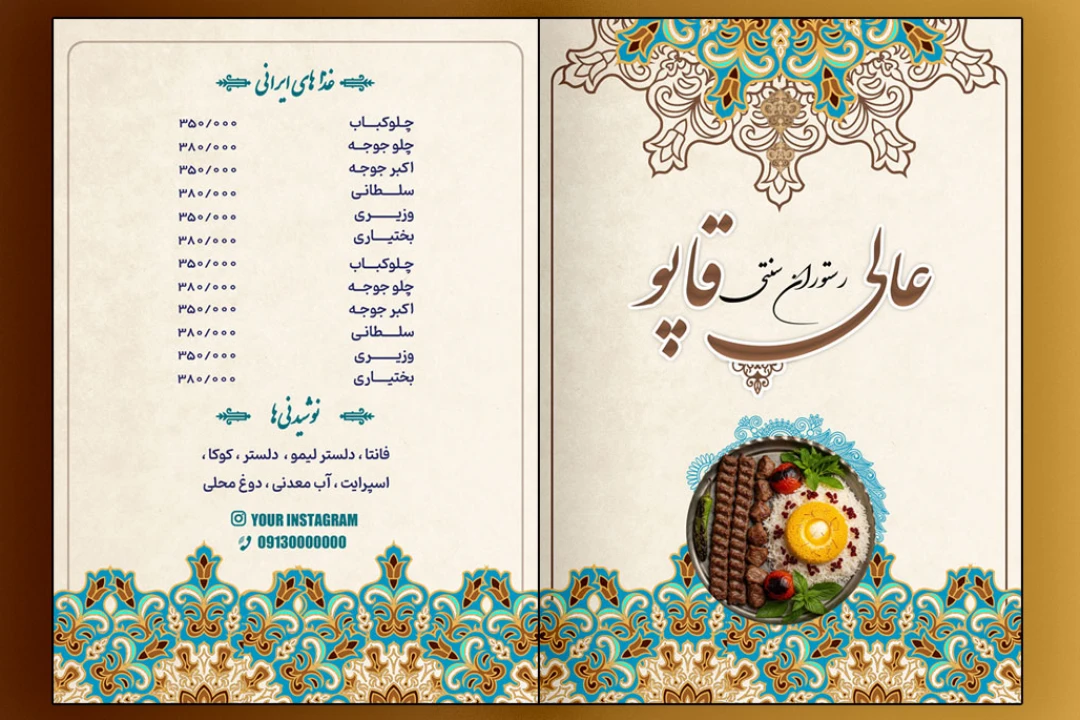 عالی قاپو
رستوران سنتی
غذاهای ایرانی
چلوکباب ۳۵۰/۰۰۰
چلو جوجه ۳۸۰/۰۰۰
اکبر جوجه ۳۵۰/۰۰۰
سلطانی ۳۸۰/۰۰۰
وزیری ۳۵۰/۰۰۰
بختیاری ۳۸۰/۰۰۰
چلوکباب ۳۵۰/۰۰۰
چلو جوجه ۳۸۰/۰۰۰
اکبر جوجه ۳۵۰/۰۰۰
سلطانی ۳۸۰/۰۰۰
وزیری ۳۵۰/۰۰۰
بختیاری ۳۸۰/۰۰۰
نوشیدنی‌ها
فانتا ، دلستر لیمو ، دلستر ، کوکا ،
اسپرایت ، آب معدنی ، دوغ محلی
YOUR INSTAGRAM
09130000000